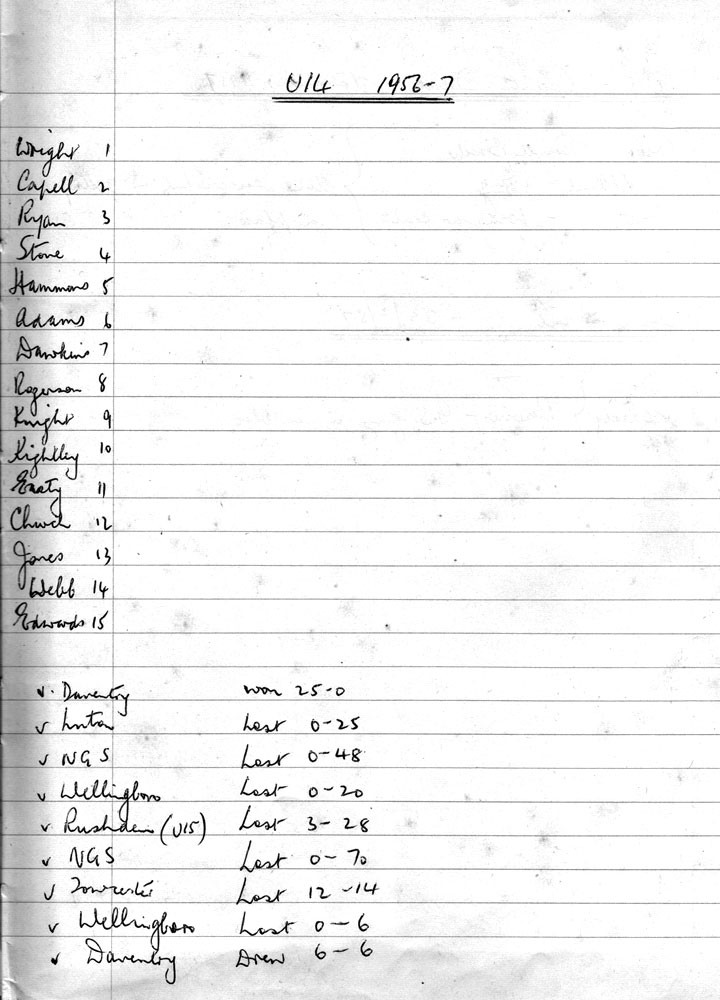 U14 1956-7
Wright 1
Capell 2
Ryan 3
Stone 4
Hammons 5
Adams 6
Dawkins 7
Rogerson 8
Knight 9
Kightley 10
Easty 11
Church 12
Jones 13
Webb 14
Edwards 15
v. Daventry won 25-0
v Luton Lost 0-25
v NGS Lost 0-48
v Wellingboro Lost 0-20
v Rushden (U15) Lost 3-28
v NGS Lost 0-70
v Towcester Lost 12-14
v Wellingboro Lost 0-6
v Daventry Drew 6-6